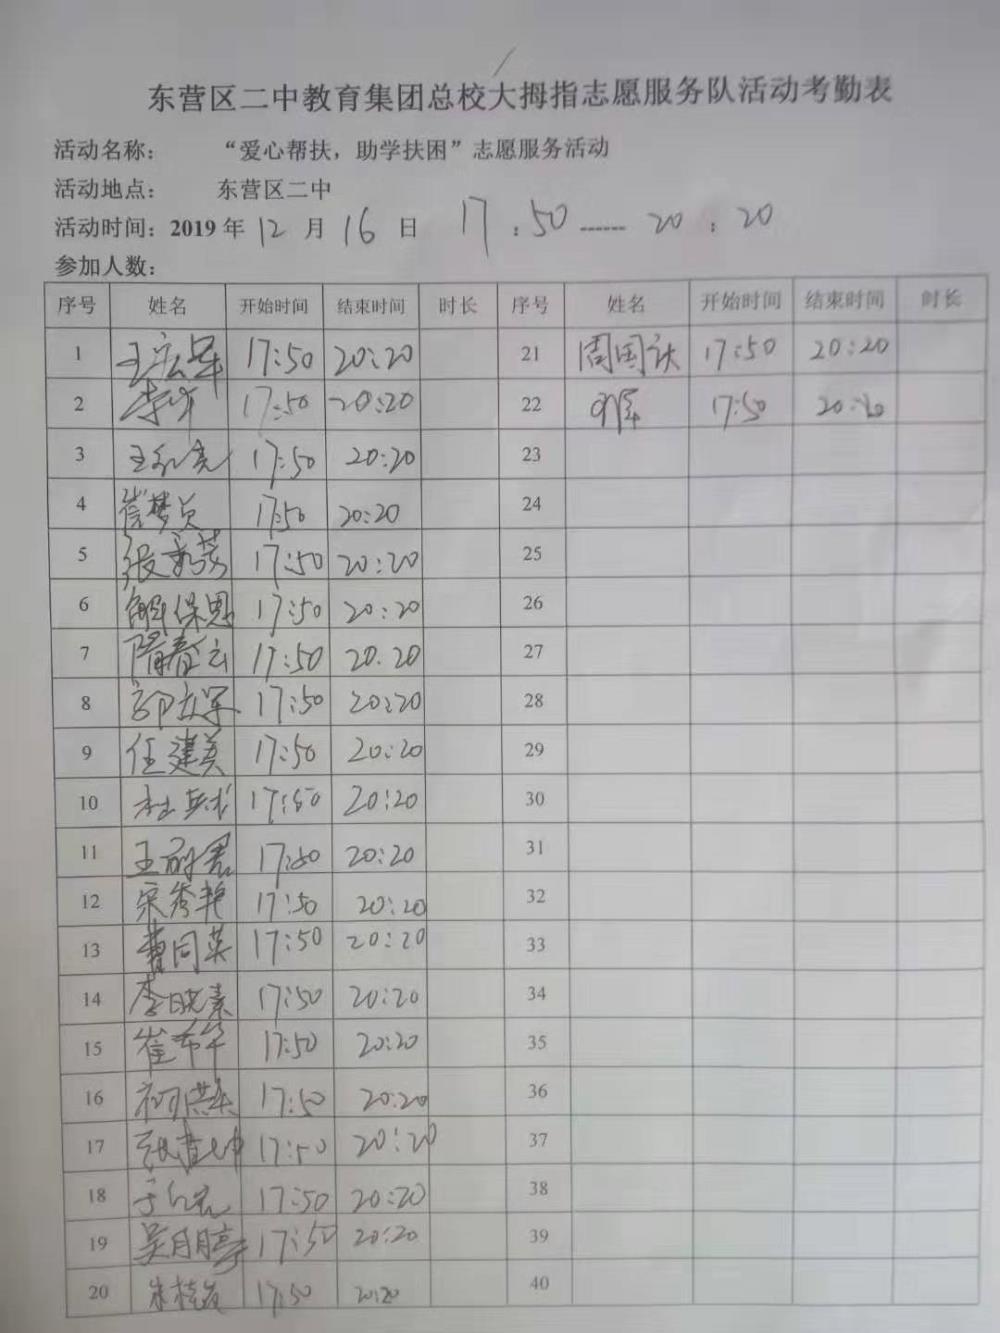 东营区二中教育集团总校大拇指志愿服务队活动考勤表
活动名称： “爱心帮扶，助学扶困”志愿服务活动
活动地点： 东营区二中
活动时间：2019 年 12 月 16 日 17：50 ------ 20：20
参加人数：
序号 姓名 开始时间 结束时间 时长 序号 姓名 开始时间 结束时间 时长
1 王宏军 17:50 20:20 21 周国庆 17:50 20:20
2 17:50 20:20 22 17:50 20:20
3 王 亮 17:50 20:20 23
4 崔梦贞 17:50 20:20 24
5 张 17:50 20:20 25
6 解保恩 17:50 20:20 26
7 隋春云 17:50 20.20 27
8 郭立军 17:50 20:20 28
9 任建美 17:50 20:20 29
10 杜 17:50 20:20 30
11 王 君 17:50 20:20 31
12 宋秀艳 17:50 20:20 32
13 曹同英 17:50 20:20 33
14 李晓素 17:50 20:20 34
15 崔希华 17:50 20:20 35
16 17:50 20:20 36
17 张 17:50 20:20 37
18 于 17:50 20:20 38
19 吴月亭 17:50 20:20 39
20 朱桂 17:50 20:20 40